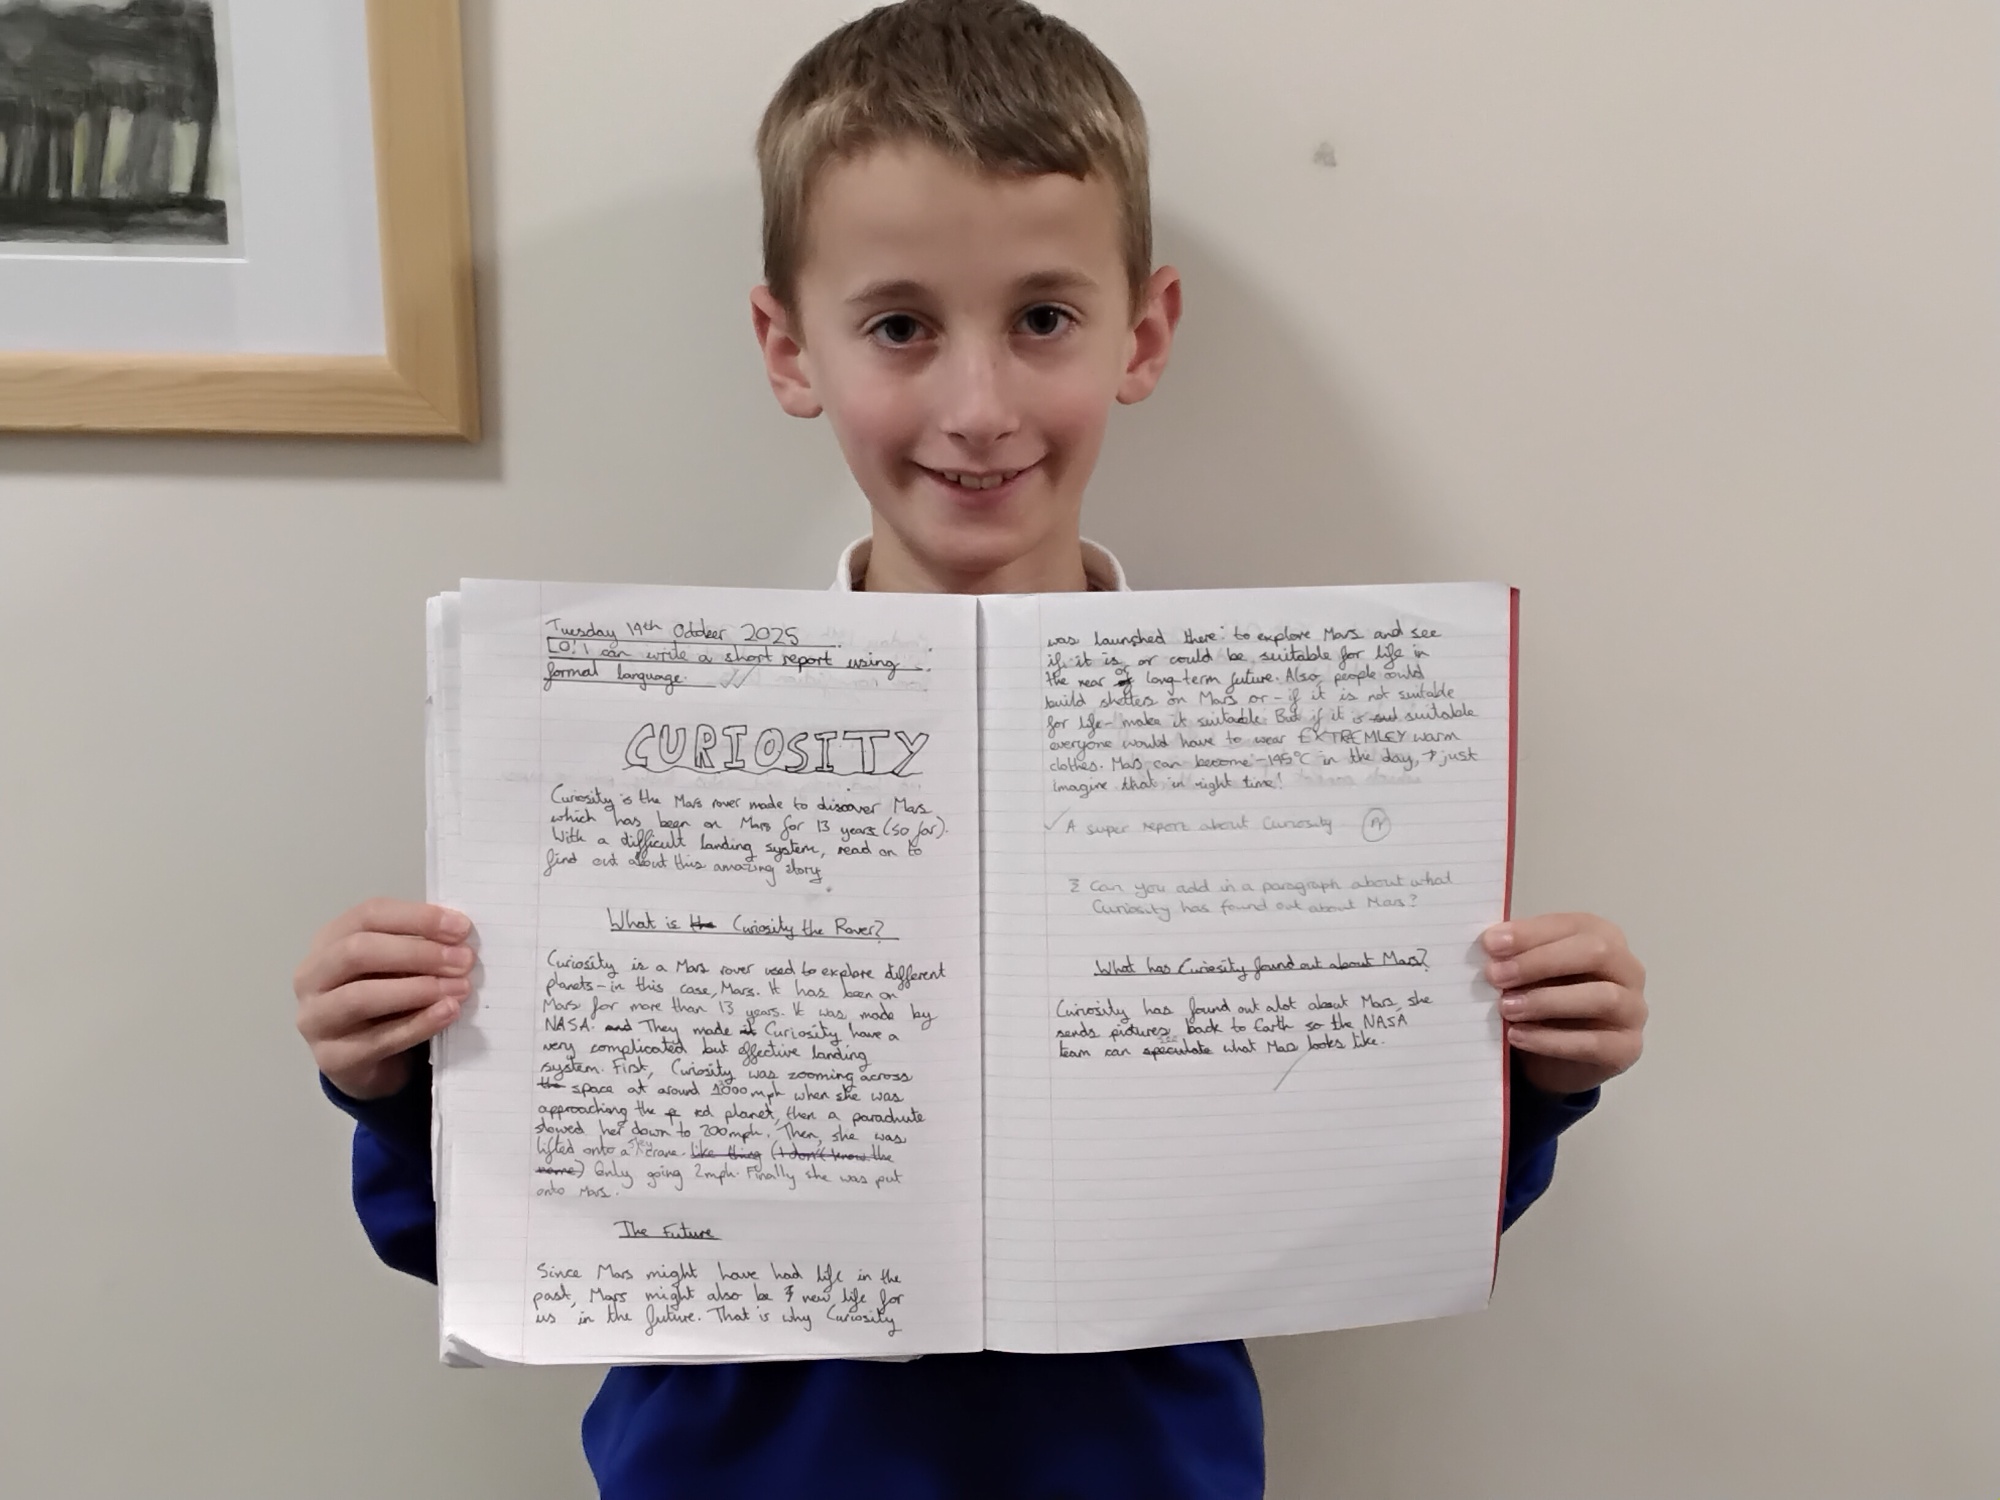 Tuesday 14th October 2025
LO: I can write a short report using
formal language.
CURIOSITY
Curiosity is the Mars rover made to discover Mars
which has been on Mars for 13 years (so far).
With a difficult landing system, read on to
find out about this amazing story.
What is the Curiosity the Rover?
Curiosity is a Mars rover used to explore different
planets - in this case, Mars. It has been on
Mars for more than 13 years. It was made by
NASA. and They made it Curiosity have a
very complicated but effective landing
system. First, Curiosity was zooming across
the space at around 1000mph when she was
approaching the red planet, then a parachute
slowed her down to 200mph. Then, she was
lifted onto a sky crane like thing (I don't know the
name) Only going 2mph. Finally she was put
onto Mars.
The Future
Since Mars might have had life in the
past, Mars might also be new life for
us in the future. That is why Curiosity
was launched there: to explore Mars and see
if it is, or could be suitable for life in
the near or of long-term future. Also, people could
build shelters on Mars or - if it is not suitable
for life - make it suitable. But if it is suitable
everyone would have to wear EXTREMLEY warm
clothes. Mars can become -195°C in the day, just
imagine that in night time!
A super report about Curiosity
Can you add in a paragraph about what
Curiosity has found out about Mars?
What has Curiosity found out about Mars?
Curiosity has found out alot about Mars, she
sends pictures back to Earth so the NASA
team can see speculate what Mars looks like.